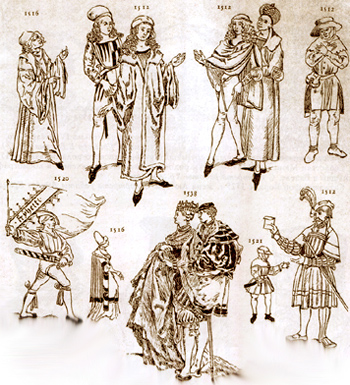 1516
1512
1512
1520
1516
1538
1521
1512